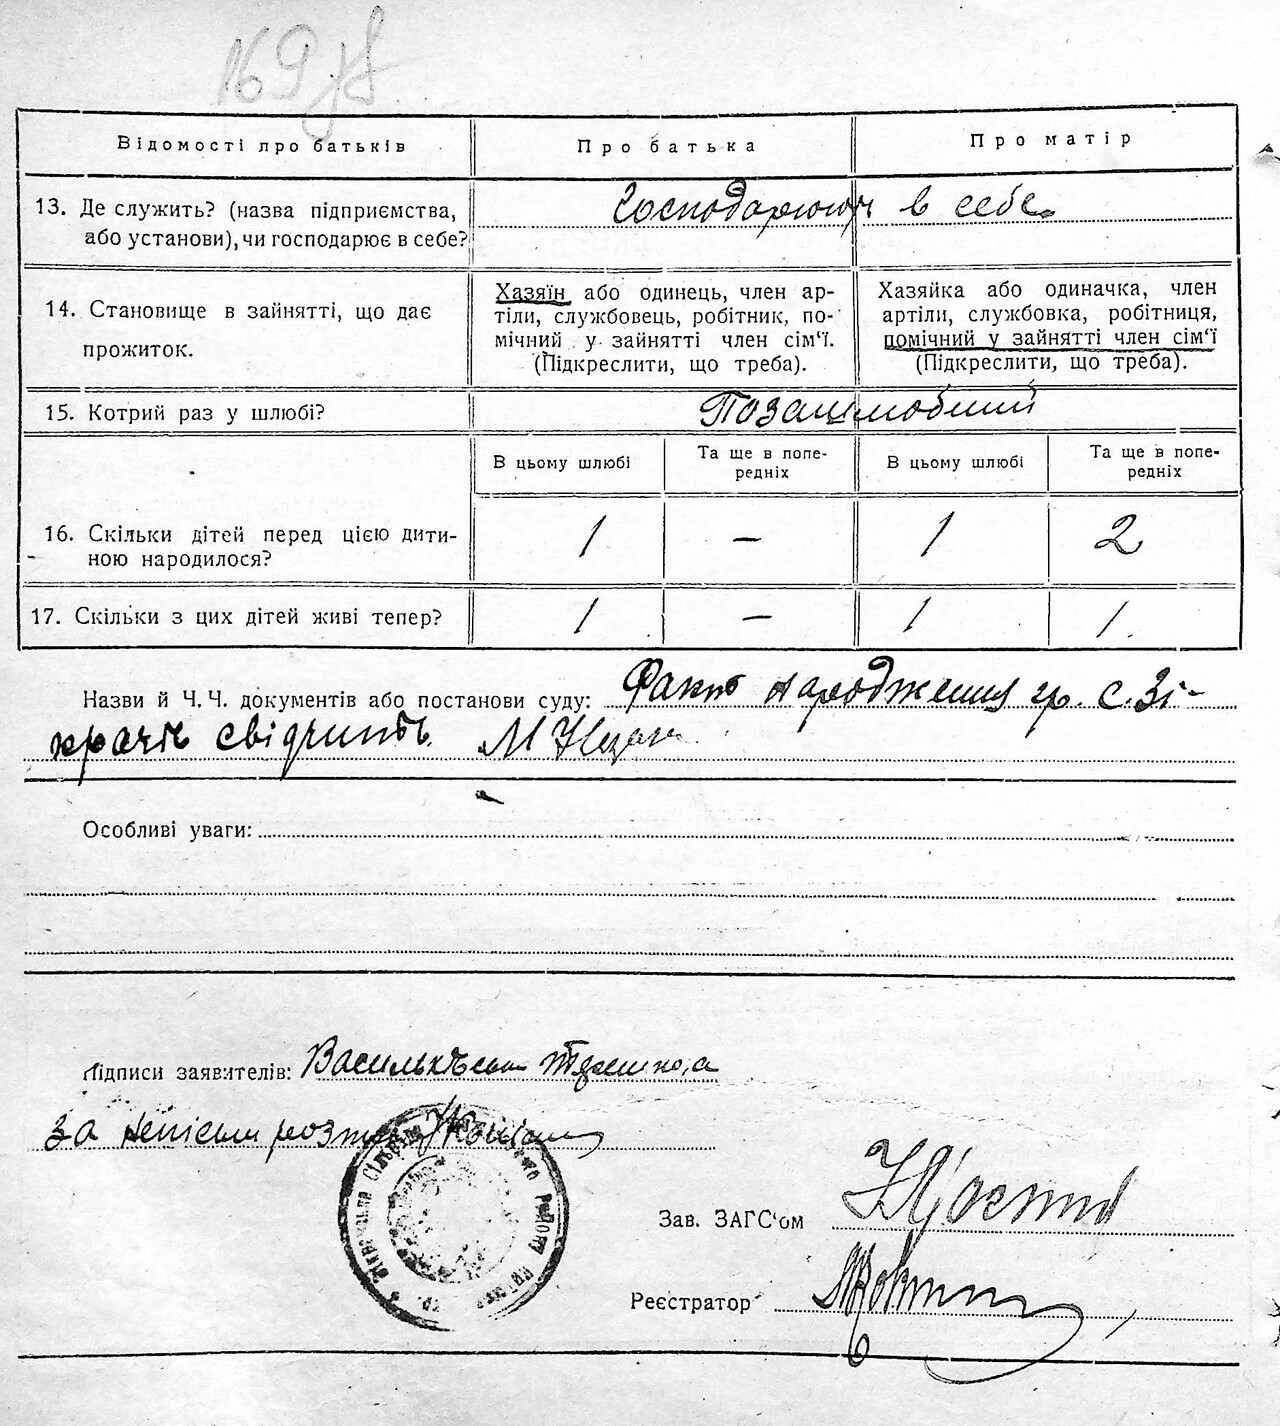 169 зв
Відомості про батьків
Про батька
Про матір
13. Де служить? (назва підприємства,
або установи), чи господарює в себе?
Господарюють в себе.
14. Становище в зайнятті, що дає
прожиток.
Хазяїн або одинець, член ар-
тіли, службовець, робітник, по-
мічний у зайнятті член сім'ї.
(Підкреслити, що треба).
Хазяйка або одиначка, член
артіли, службовка, робітниця,
помічний у зайнятті член сім'ї
(Підкреслити, що треба).
15. Котрий раз у шлюбі?
Позашлюбний
В цьому шлюбі
Та ще в попе-
редніх
В цьому шлюбі
Та ще в попе-
редніх
16. Скільки дітей перед цією дити-
ною народилося?
1 — 1 2
17. Скільки з цих дітей живі тепер?
1 — 1 1
Назви й Ч. Ч. документів або постанови суду: Факт народження гр. с. Зі-
крачів свідчить
Особливі уваги:
Підписи заявителів:
за
Зав. ЗАГС'ом
Реєстратор